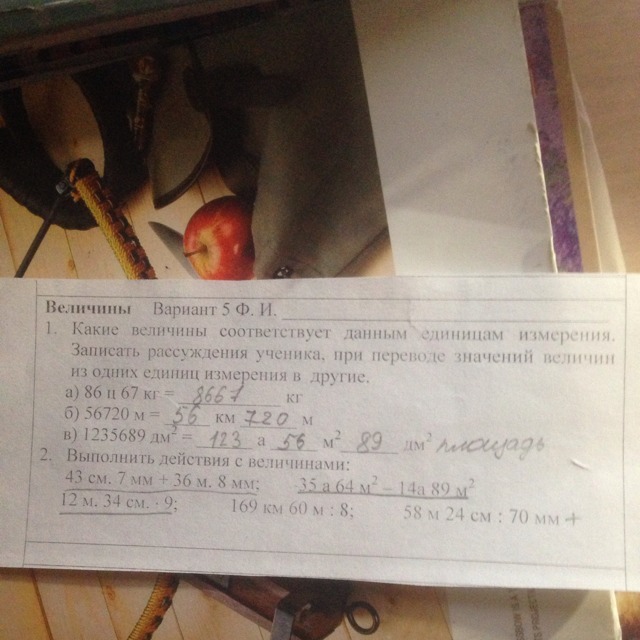 Величины Вариант 5 Ф. И.
1. Какие величины соответствует данным единицам измерения.
Записать рассуждения ученика, при переводе значений величин
из одних единиц измерения в другие.
а) 86 ц 67 кг = 8667 кг
б) 56720 м = 56 км 720 м
в) 1235689 дм² = 123 а 56 м² 89 дм² площадь
2. Выполнить действия с величинами:
43 см. 7 мм + 36 м. 8 мм; 35 а 64 м² – 14а 89 м²
12 м. 34 см. : 9; 169 км 60 м : 8; 58 м 24 см : 70 мм +